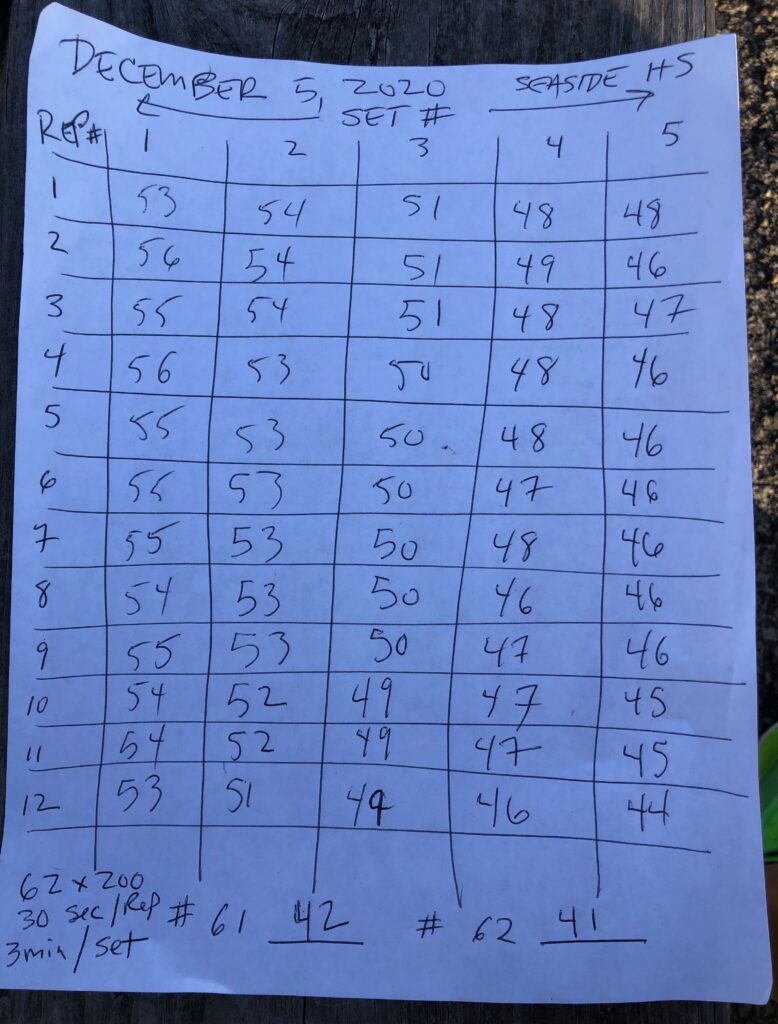 DECEMBER 5, 2020 SEASIDE HS
SET #
REP# 1 2 3 4 5
1 53 54 51 48 48
2 56 54 51 49 46
3 55 54 51 48 47
4 56 53 50 48 46
5 55 53 50 48 46
6 55 53 50 47 46
7 55 53 50 48 46
8 54 53 50 46 46
9 55 53 50 47 46
10 54 52 49 47 45
11 54 52 49 47 45
12 53 51 49 46 44
62 x 200
30 sec/Rep # 61 42 # 62 41
3min/set